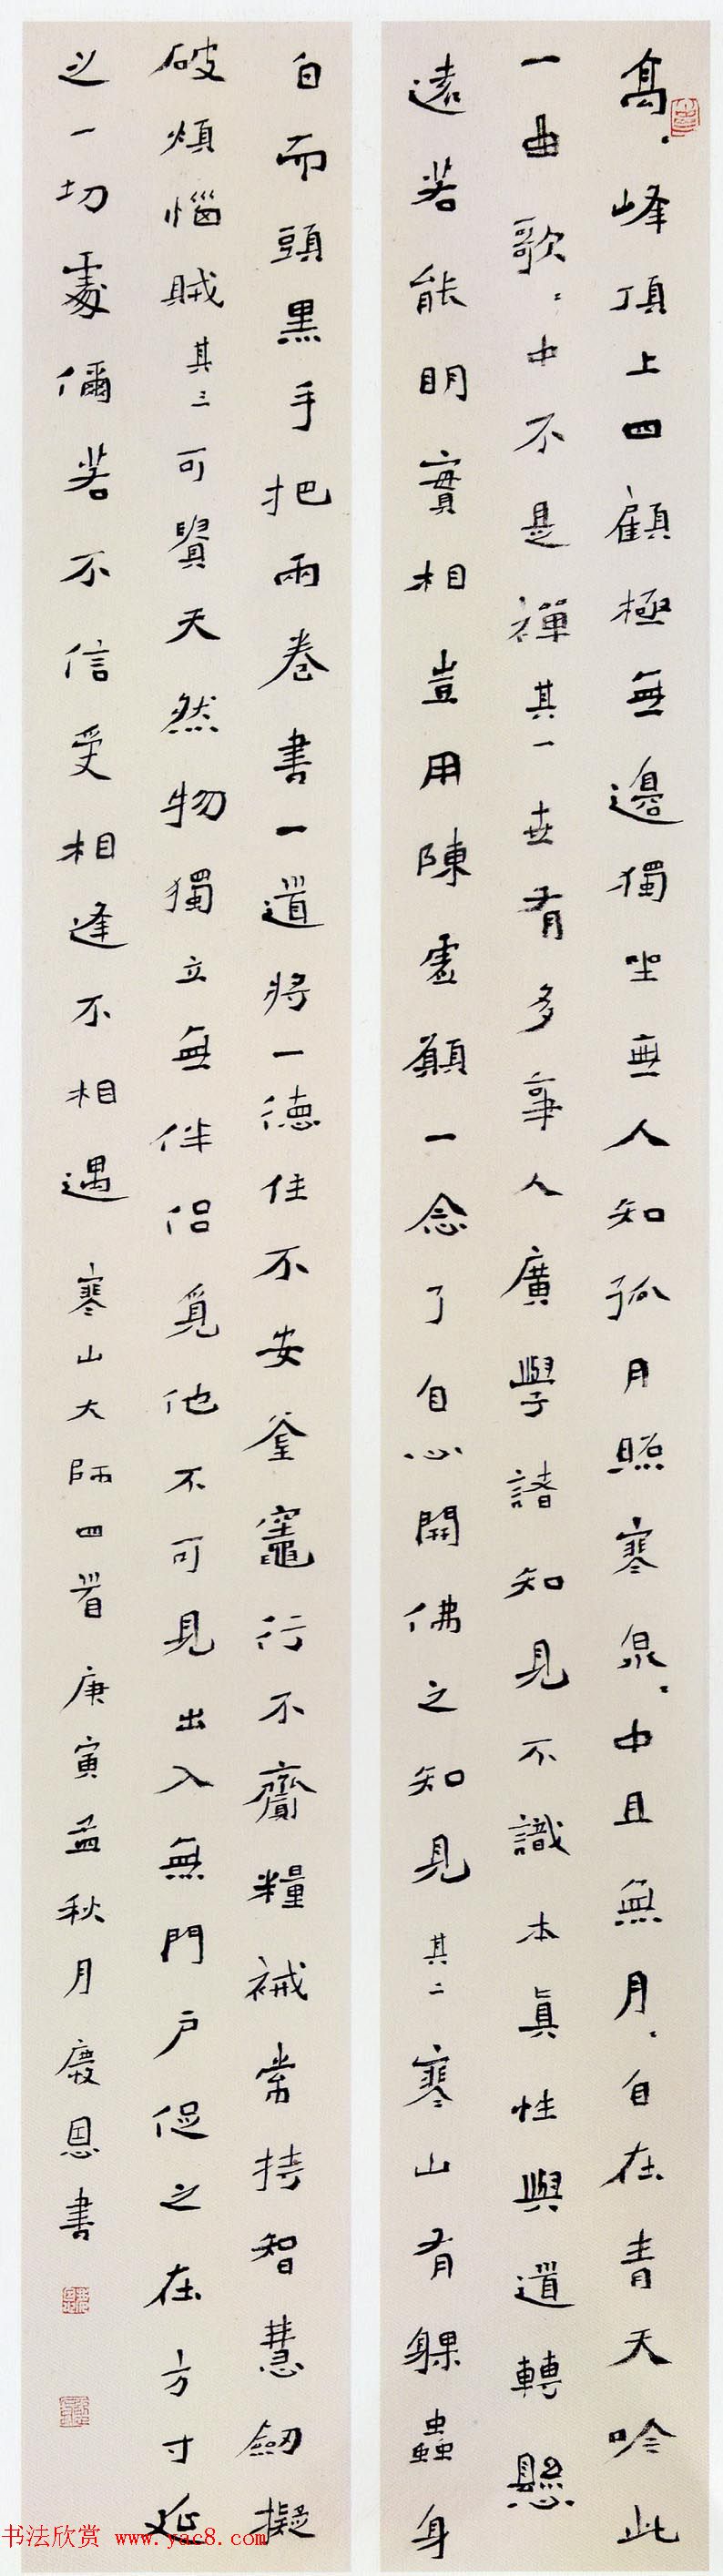 高〻峰頂上四顧極無邊獨坐無人知孤月照寒泉〻中且無月〻自在青天吟此
一曲歌〻中不是禪其一世有多事人廣學諸知見不識本真性與道轉懸
遠若能明實相豈用陳虛願一念了自心開佛之知見其二寒山有躶蟲身
白而頭黑手把兩卷書一道將一德住不安釜竈行不齎糧裓常持智慧劒擬
破煩惱賊其三可貴天然物獨立無伴侶覓他不可見出入無門戶促之在方寸延
之一切處儞若不信受相逢不相遇 寒山大師四首 庚寅孟秋月慶恩書
书法欣赏 www.yac8.com